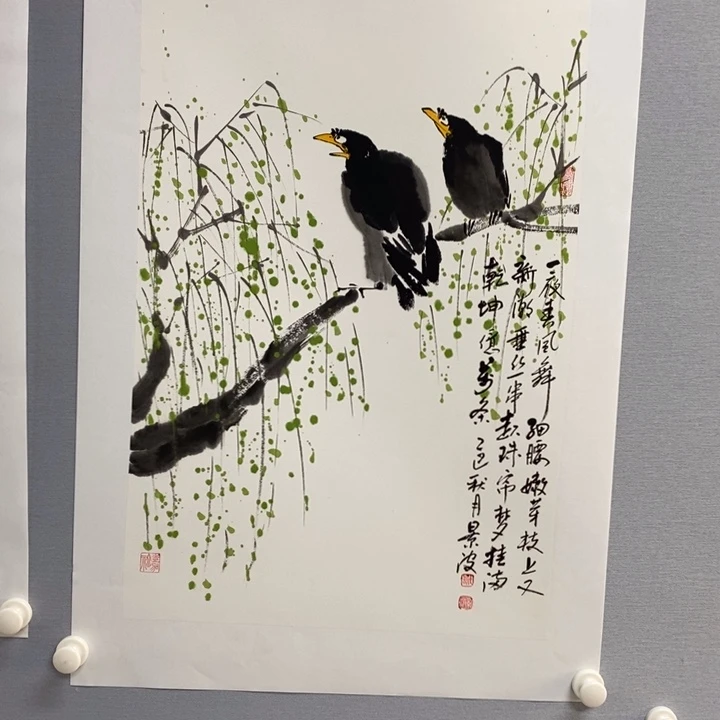 一夜春风舞细腰嫩芽枝上又
新潮垂丝串起珠帘梦挂满
乾坤億萬条乙巳秋月景波